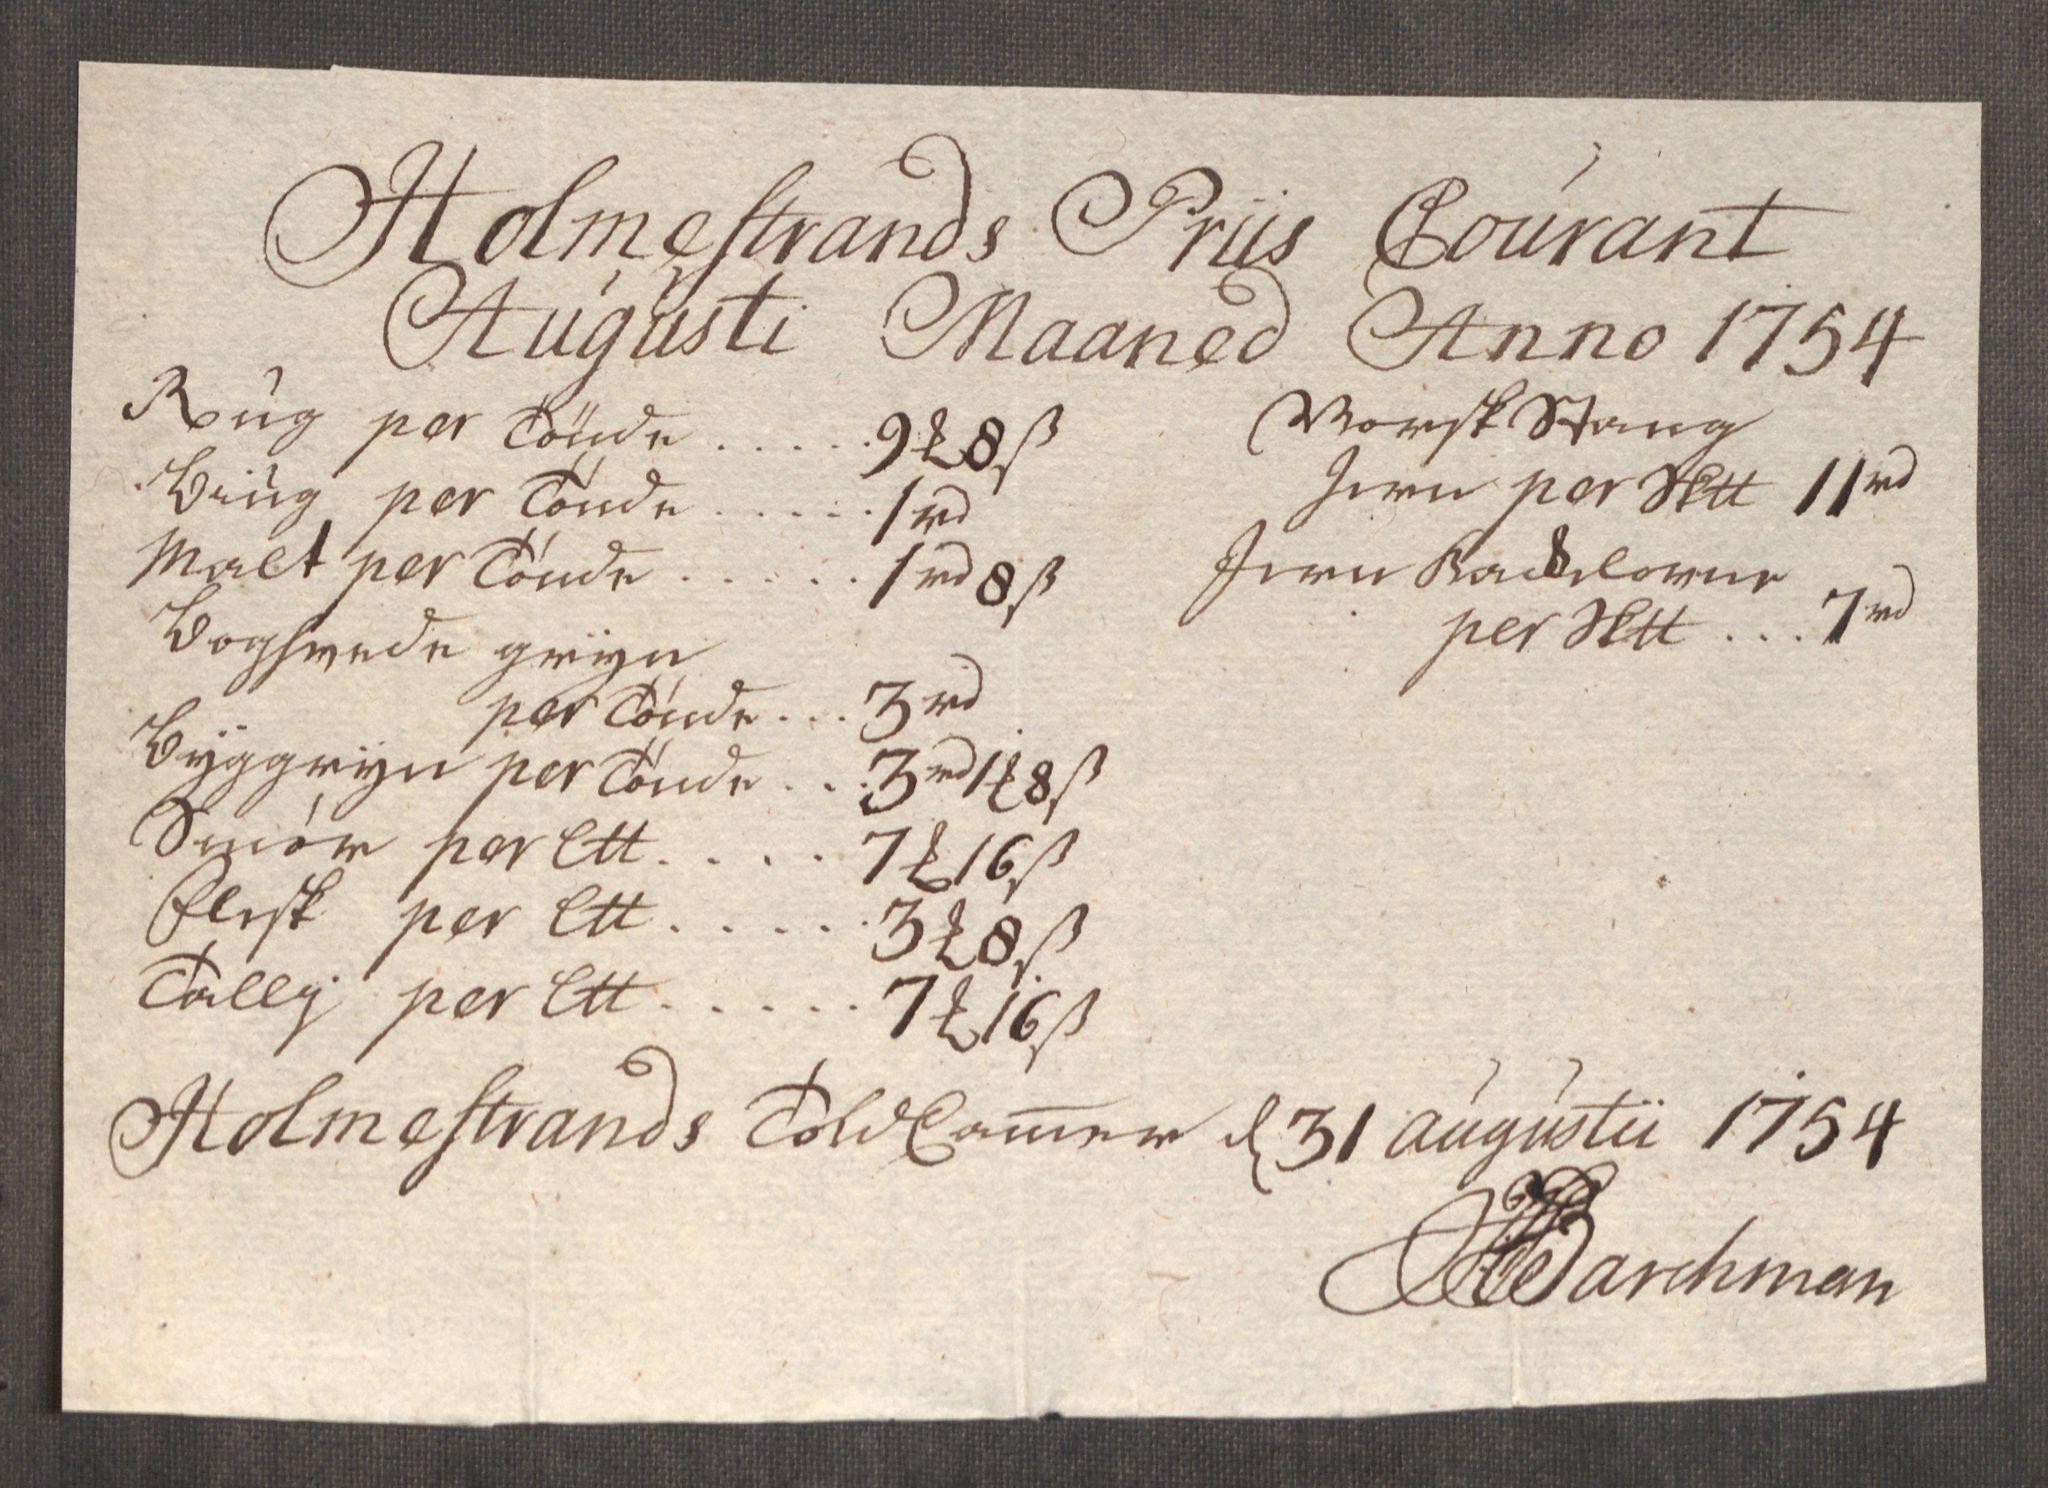 Holmestrands Priis Courant
Augusti Maaned Anno 1754
Rug per Tönde ..... 9 ℔ 8 ß
Biug per Tönde ..... 1 rd
Malt per Tönde ..... 1 rd 8 ß
Boghvede gryn
per Tönde ... 3 rd
Byggryn per Tönde ... 3 rd 1 ℔ 8 ß
Smör per Ctt .... 7 ℔ 16 ß
Flesk per Ctt ..... 3 ℔ 8 ß
Tallig per Ctt ..... 7 ℔ 16 ß
Norsk Stang
Jern per Sktt 11 rd
Jern
per Sktt ... 7 rd
Holmestrands Told Camer d 31 augustii 1754
Barchman